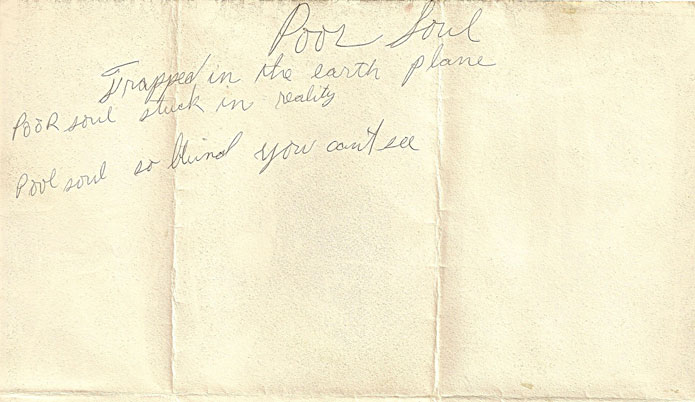 Poor Soul
Trapped in the earth plane
POOR soul stuck in reality
Poor soul so blind you can't see